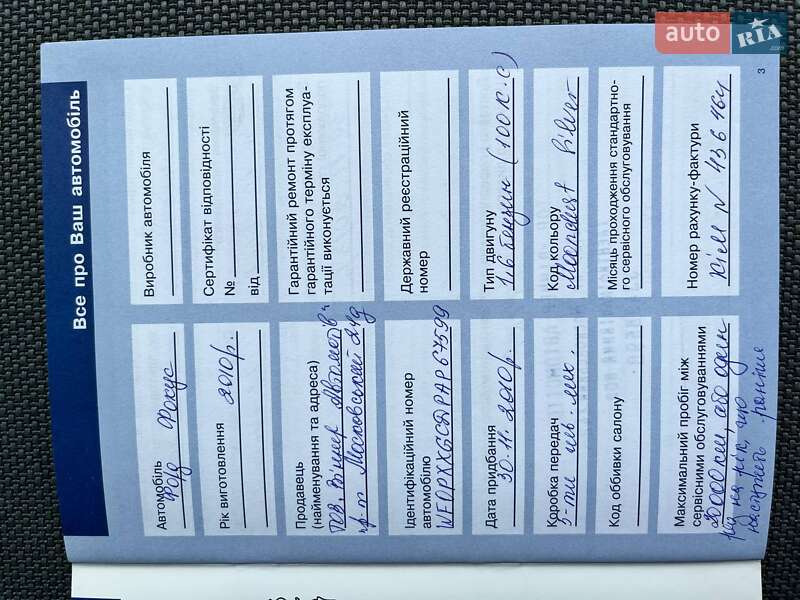 auto RIA.com
Все про Ваш автомобіль
Автомобіль
Форд Фокус
Рік виготовлення 2010р.
Продавець
(найменування та адреса)
ТОВ "Віннер Автомотів"
пр-т Московський 24д
Ідентифікаційний номер
автомобілю
Дата придбання
30.11.2010р.
Коробка передач
5-ти мех.
Код оббивки салону
Максимальний пробіг між
сервісними обслуговуваннями
20000км, або один
раз на рік, що
наступить раніше
Виробник автомобіля
Сертифікат відповідності
№
від
Гарантійний ремонт протягом
гарантійного терміну експлуа-
тації виконується
Державний реєстраційний
номер
Тип двигуну
1,6 бензин (100к.с)
Код кольору
Moondust Silver
Місяць проходження стандартно-
го сервісного обслуговування
Номер рахунку-фактури
N 436464
3